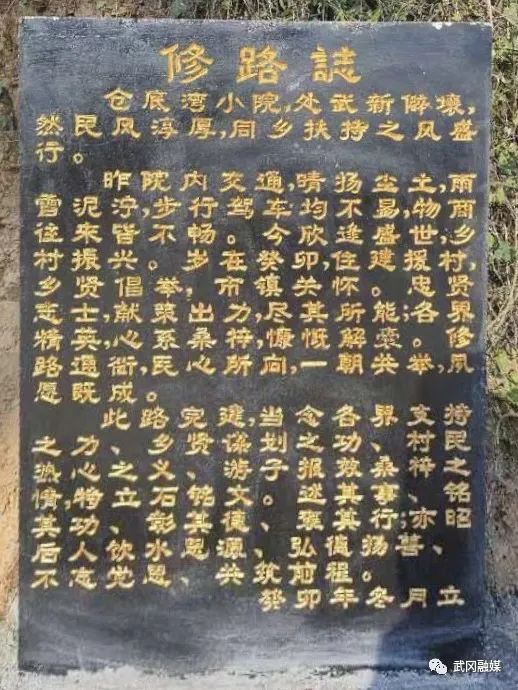 修路誌
仓底湾小院,处武新僻壤,
然民风淳厚,同乡扶持之风盛
行。
昨院内交通,晴扬尘土,雨
雪泥泞,步行驾车均不易;物商
往来皆不畅。今欣逢盛世,乡
村振兴。岁在癸卯,住建援村,
乡贤倡举,市镇关怀。忠贤
士献策出力,尽其所能;各界
精英心系桑,慷慨解囊。修
路通衔,民心所向,一朝共举,夙
愿既成。
此路完建,当念各界支持
之力、乡贤谋划之功、村民之
热心、义游子之报效桑梓之
情,物之立石铭文。述其事;铭
其功、彰其德、褒其行;亦昭
后人饮水思源、弘扬德善、
不忘党恩、共筑前程。
癸卯年冬月立
武冈融媒